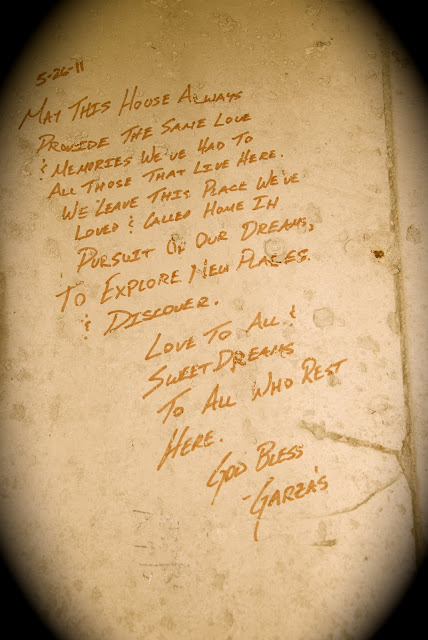 5-26-11
May This House Always
Provide The Same Love
& Memories We've Had To
All Those That Live Here.
We Leave This Place We've
Loved & Called Home In
Pursuit Of Our Dreams,
To Explore New Places.
& Discover.
Love To All &
Sweet Dreams
To All Who Rest
Here.
God Bless
-Garza's